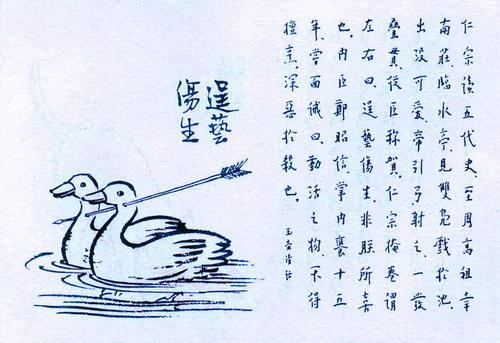 仁宗讀五代史、至周高祖幸
南莊臨水亭、見雙鳧戲於池、
出沒可愛、帝引弓射之、一發
疊貫、從臣稱賀、仁宗掩卷謂
左右曰、逞藝傷生、非朕所喜
也、內臣鄭昭信、掌內饔十五
年、嘗面誡曰、動活之物、不得
擅烹、深惡於殺也、
玉壺清話
逞藝
傷生